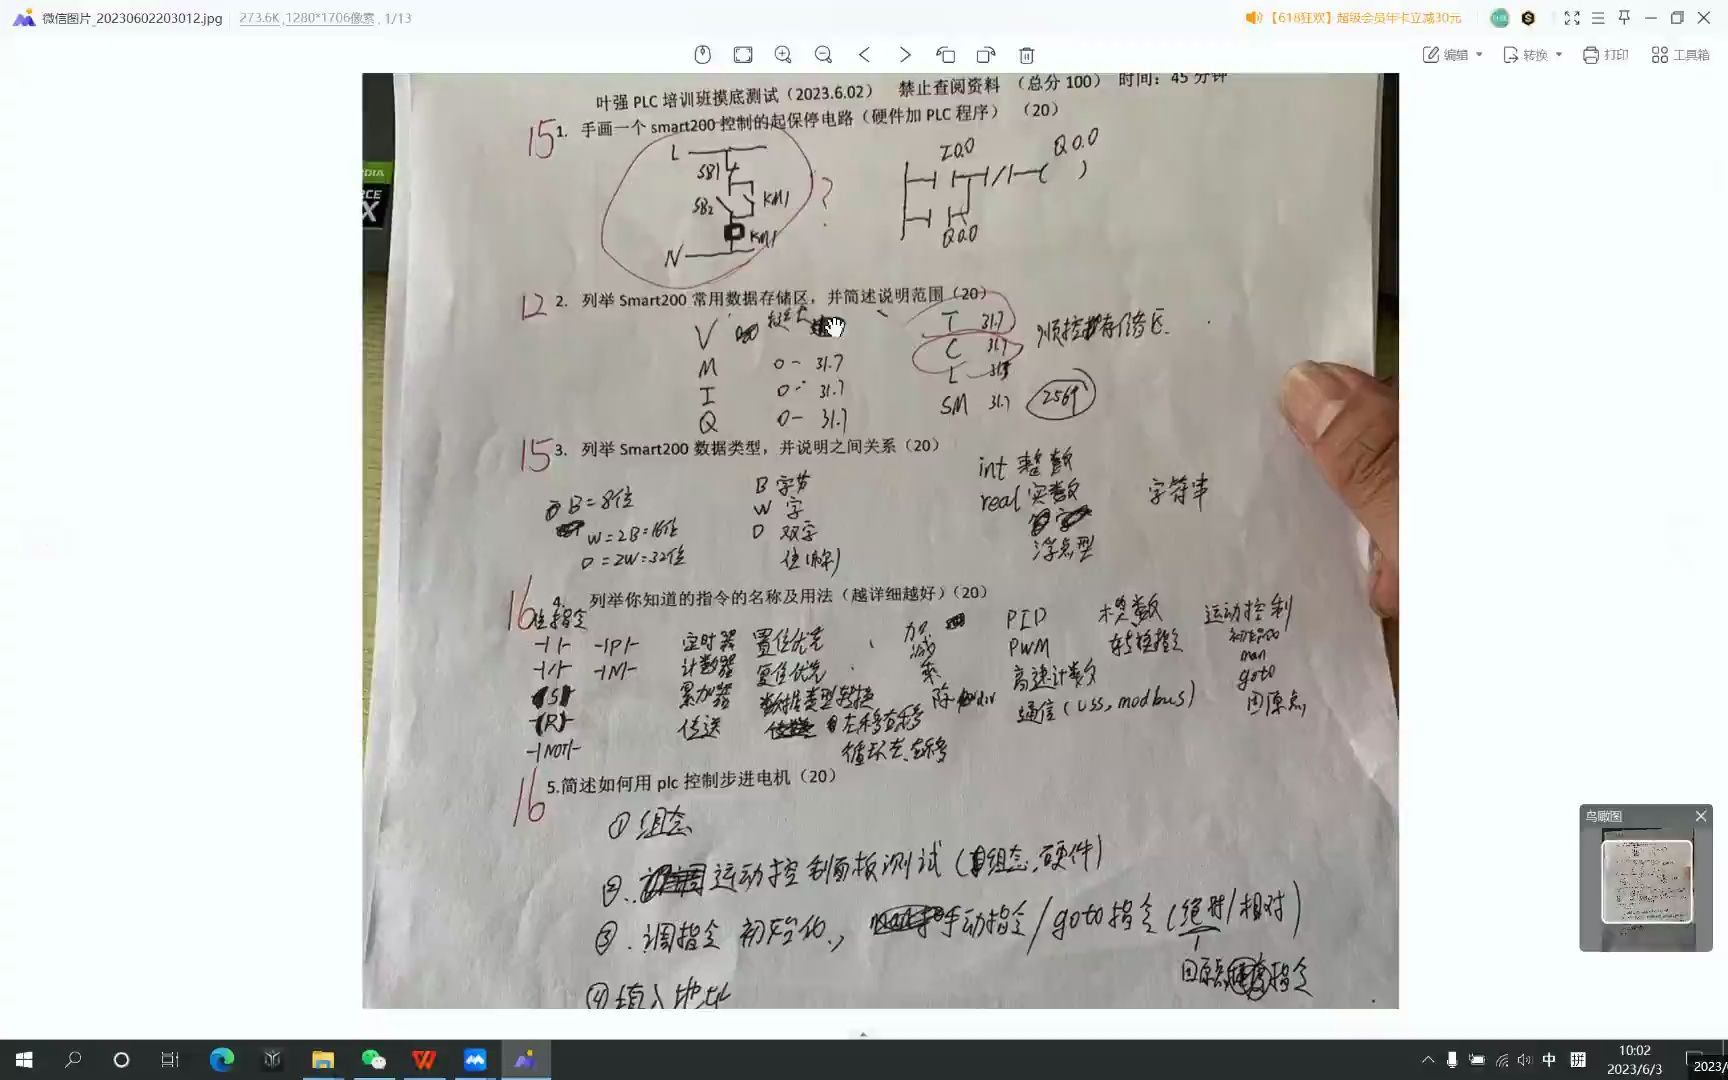 微信图片_20230602203012.jpg 273.6K,1280*1706像素, 1/13
【618狂欢】超级会员年卡立减30元
编辑 转换 打印 工具箱
叶强 PLC 培训班摸底测试（2023.6.02） 禁止查阅资料 （总分 100） 时间：45 分钟
15 1. 手画一个 smart200 控制的起保停电路（硬件加 PLC 程序） （20）
L
SB1
SB2 KM1
KM1
N
?
I0.0 Q0.0
Q0.0
12 2. 列举 Smart200 常用数据存储区，并简述说明范围（20）
V
M 0- 31.7
I 0- 31.7
Q 0- 31.7
T 31.7
C 31.7
L
SM 31.7
顺控 存储区.
256个
15 3. 列举 Smart200 数据类型，并说明之间关系（20）
B=8位
W=2B=16位
D=2W=32位
B 字节
W 字
D 双字
int 整数
real 实数 字符串
浮点型
16 4. 列举你知道的指令的名称及用法（越详细越好）（20）
位指令
-| |- -|P|-
-|/|- -|N|-
(S)
(R)
-|NOT|-
定时器 置位优先
计数器 复位优先
累加器 数据类型转换
传送 左移右移
循环左、右移
加
减
乘
除 div
PID
PWM 转换指令
高速计数
通信（USS, modbus）
运动控制
初始化
man
goto
回原点
16 5.简述如何用 plc 控制步进电机（20）
① 组态
②. 运动控制面板测试（组态.硬件）
③. 调指令 初始化, 手动指令/goto指令（绝对/相对）
回原点 指令
④ 填入地址
鸟瞰图
中
10:02
2023/6/3
2023/